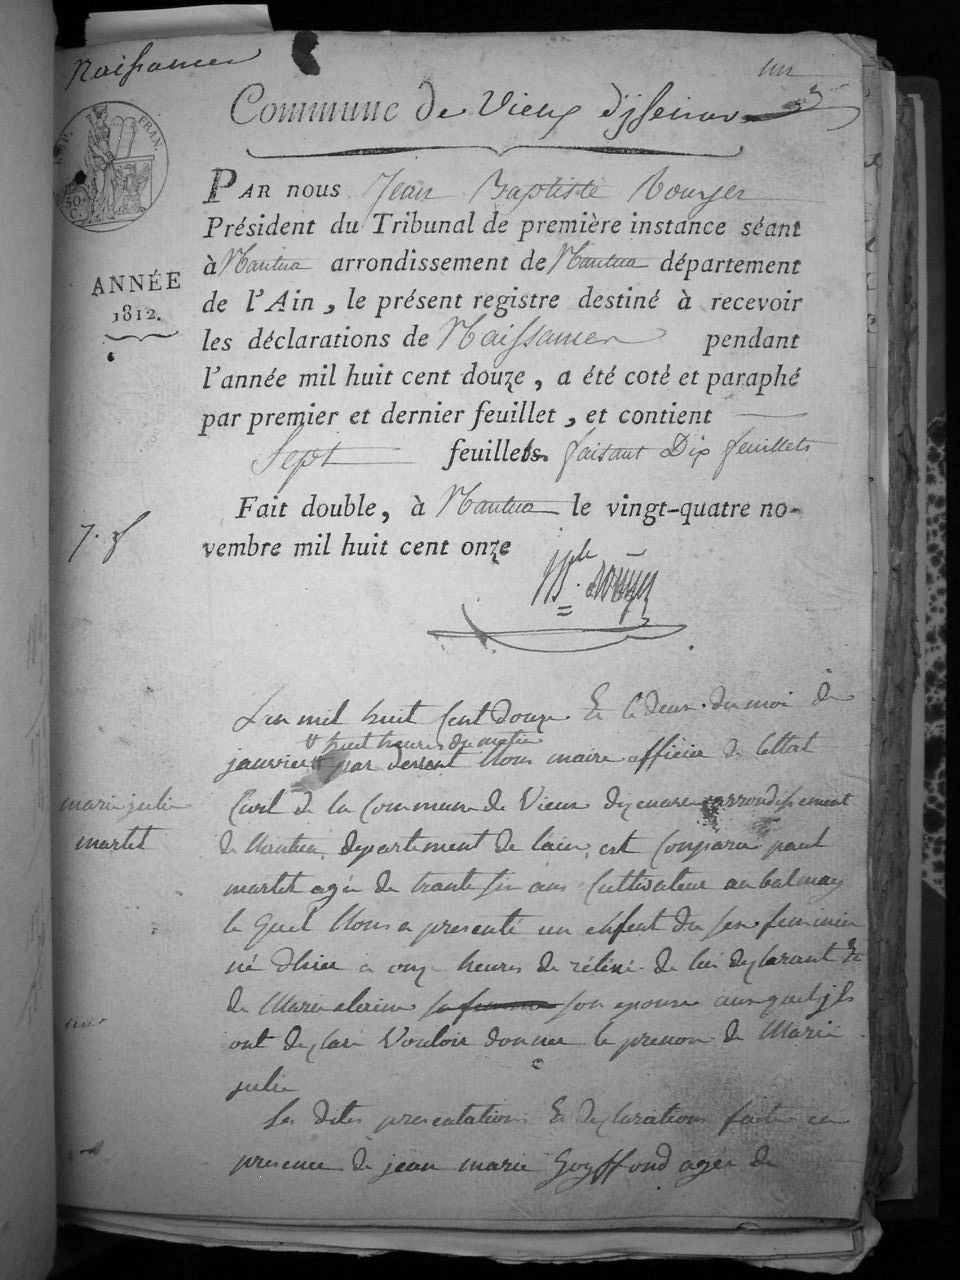 Naissances
un
Commune de Vieux d'jzenave
EMP. FRAN.
50
C.
PAR nous Jean Baptiste Rouyer
Président du Tribunal de première instance séant
à Nantua arrondissement de Nantua département
ANNÉE
1812.
de l'Ain, le présent registre destiné à recevoir
les déclarations de Naissances pendant
l'année mil huit cent douze, a été coté et paraphé
par premier et dernier feuillet, et contient
Sept feuillets. faisant Dix feuillets
Fait double, à Nantua le vingt-quatre no-
vembre mil huit cent onze
7. f
Lan mil huit Cent douze Et le deux du moi de
a huit heures du matin
janvier par devent Nous maire officier de Lettat
marie julie
martet
Civil de la Commune de Vieux dizenave arrondissement
de Nantua, departement de lain, est Conparu paul
martet agée de trante six ans Cultivateur au balmay
le quel Nous a presenté un enfent du sex feminin
né dhier a onze heures de relevé de lui declarant et
de Marie son epouse auxquel jls
ont declaré Vouloir donner le prenon de Marie
julie
Les dites presentations Et declarations faite en
presence de jean marie Goyffond agée de